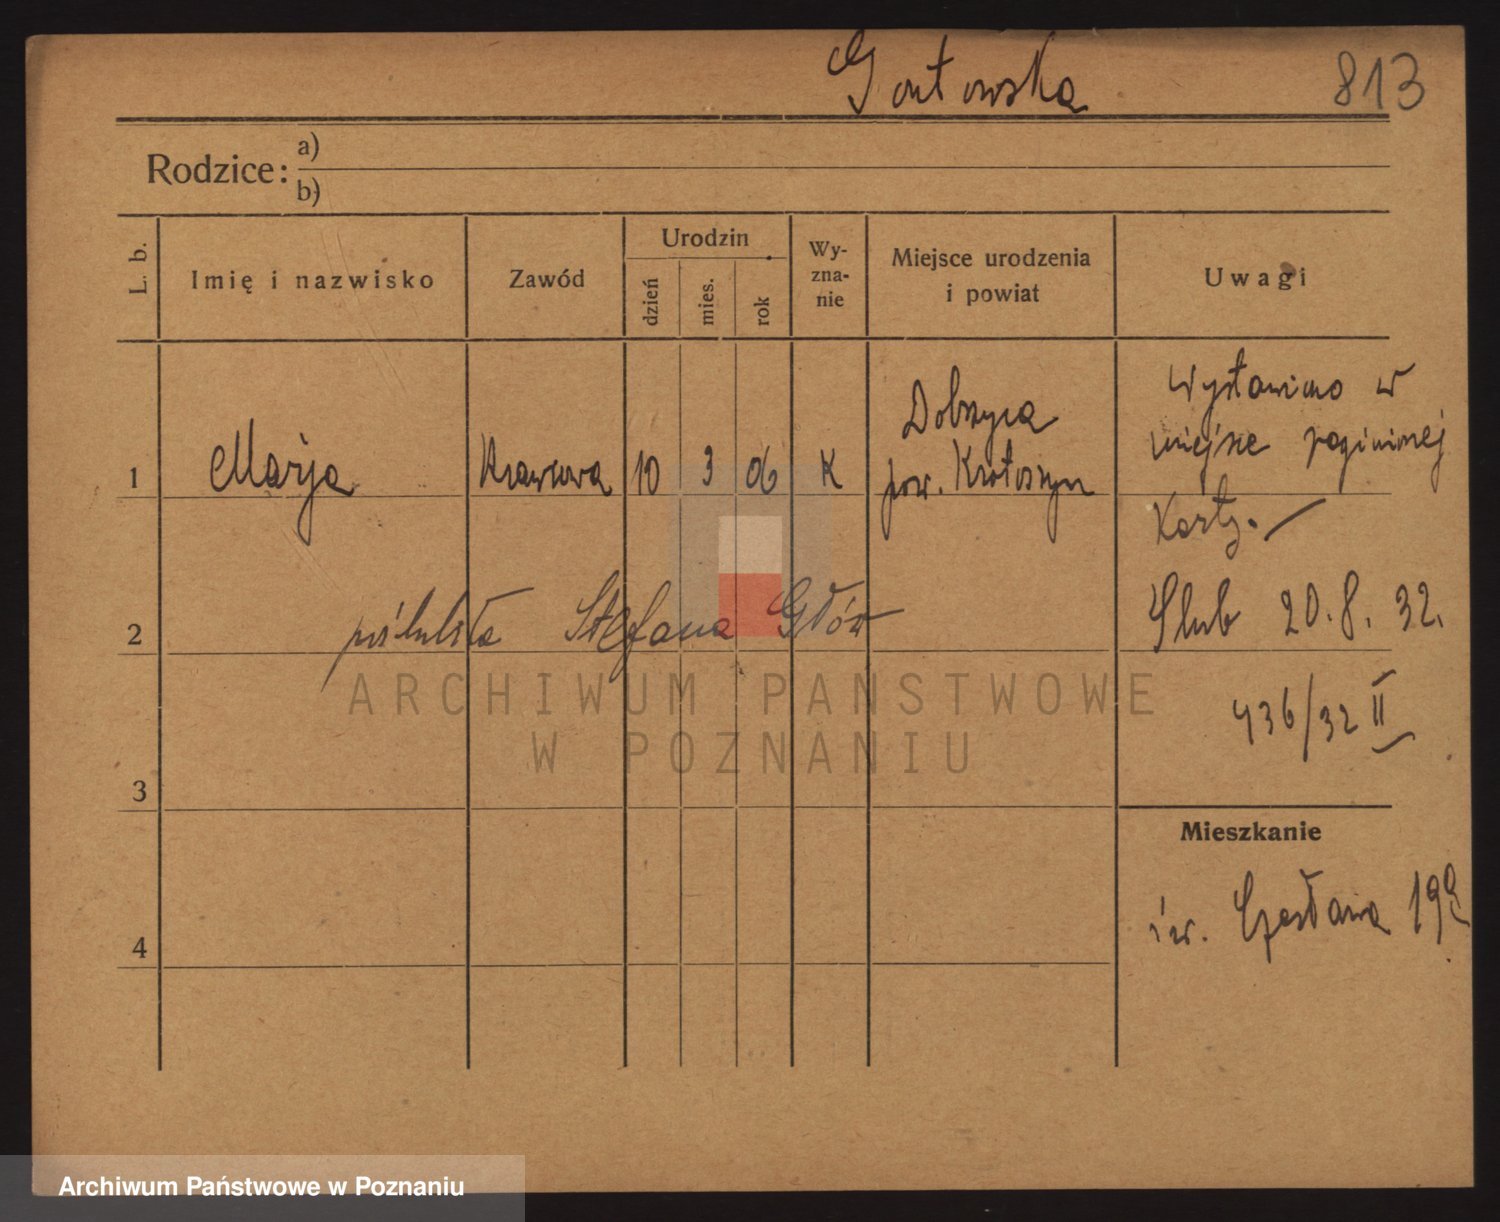 Gontowska 813
Rodzice: a)
b)
L. b.
Imię i nazwisko
Zawód
Urodzin
dzień
mies.
rok
Wy-
zna-
nie
Miejsce urodzenia
i powiat
Uwagi
1 Marja Krawcowa 10 3 06 K
Dobrzyca
pow. Krotoszyn
Wystawiono w
miejsce zaginionej
Karty.
2 poślubiła Stefana Głów
Slub 20.8.32.
436/32 II
3
4
Mieszkanie
św. Czesława 19
ARCHIWUM PAŃSTWOWE
W POZNANIU
Archiwum Państwowe w Poznaniu